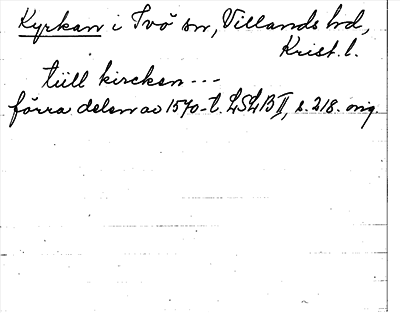 Kyrkan i Ivö sn, Villands hd,
Krist. l.
tiill kircken ---
förra delen av 1570-t. LSLB II, s. 218. orig.